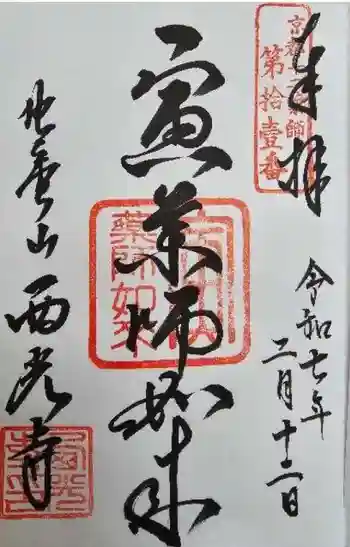 奉拝
京都十二薬師
第拾壹番
令和七年
二月十二日
寅薬師如来
薬師如来
地蔵山 西光寺